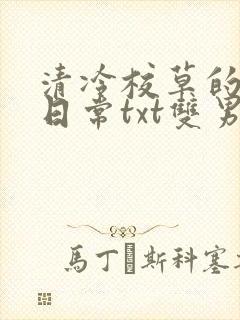 清冷校草的
日常txt雙男
馬丁斯科塞